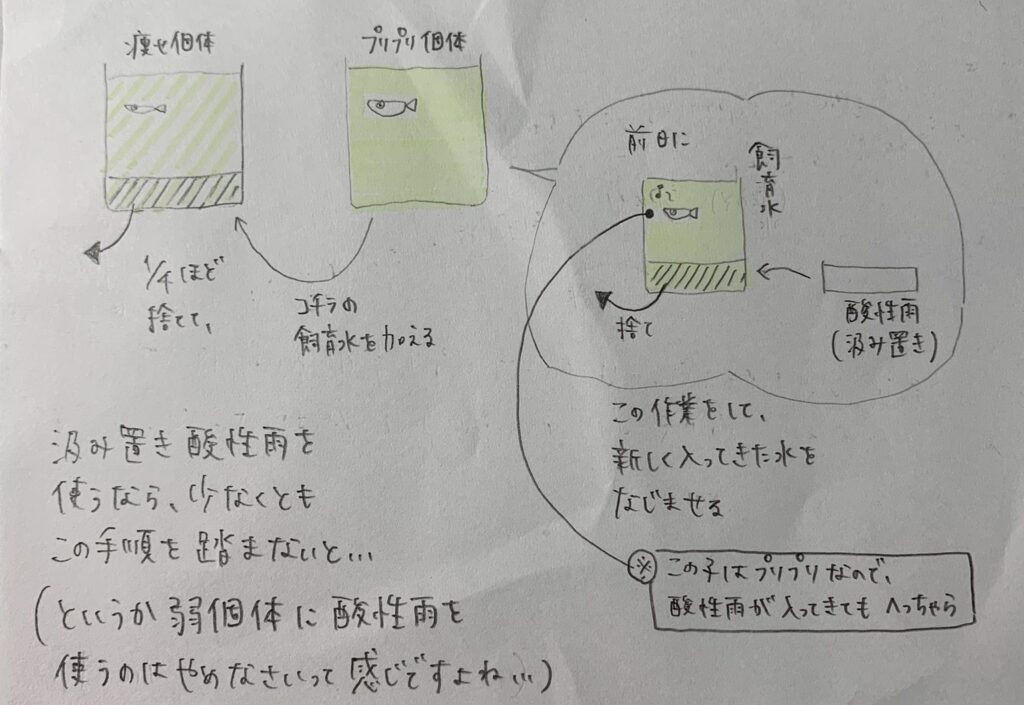 痩せ個体
プリプリ個体
1/4ほど
捨てて、
コチラの
飼育水を加える
前日に
飼育水
捨て
酸性雨
(汲み置き)
この作業をして、
新しく入ってきた水を
なじませる
※ この子はプリプリなので、
酸性雨が入ってきてもへっちゃら
汲み置き酸性雨を
使うなら、少なくとも
この手順を踏まないと…
(というか弱個体に酸性雨を
使うのはやめなさいって感じですよね…)